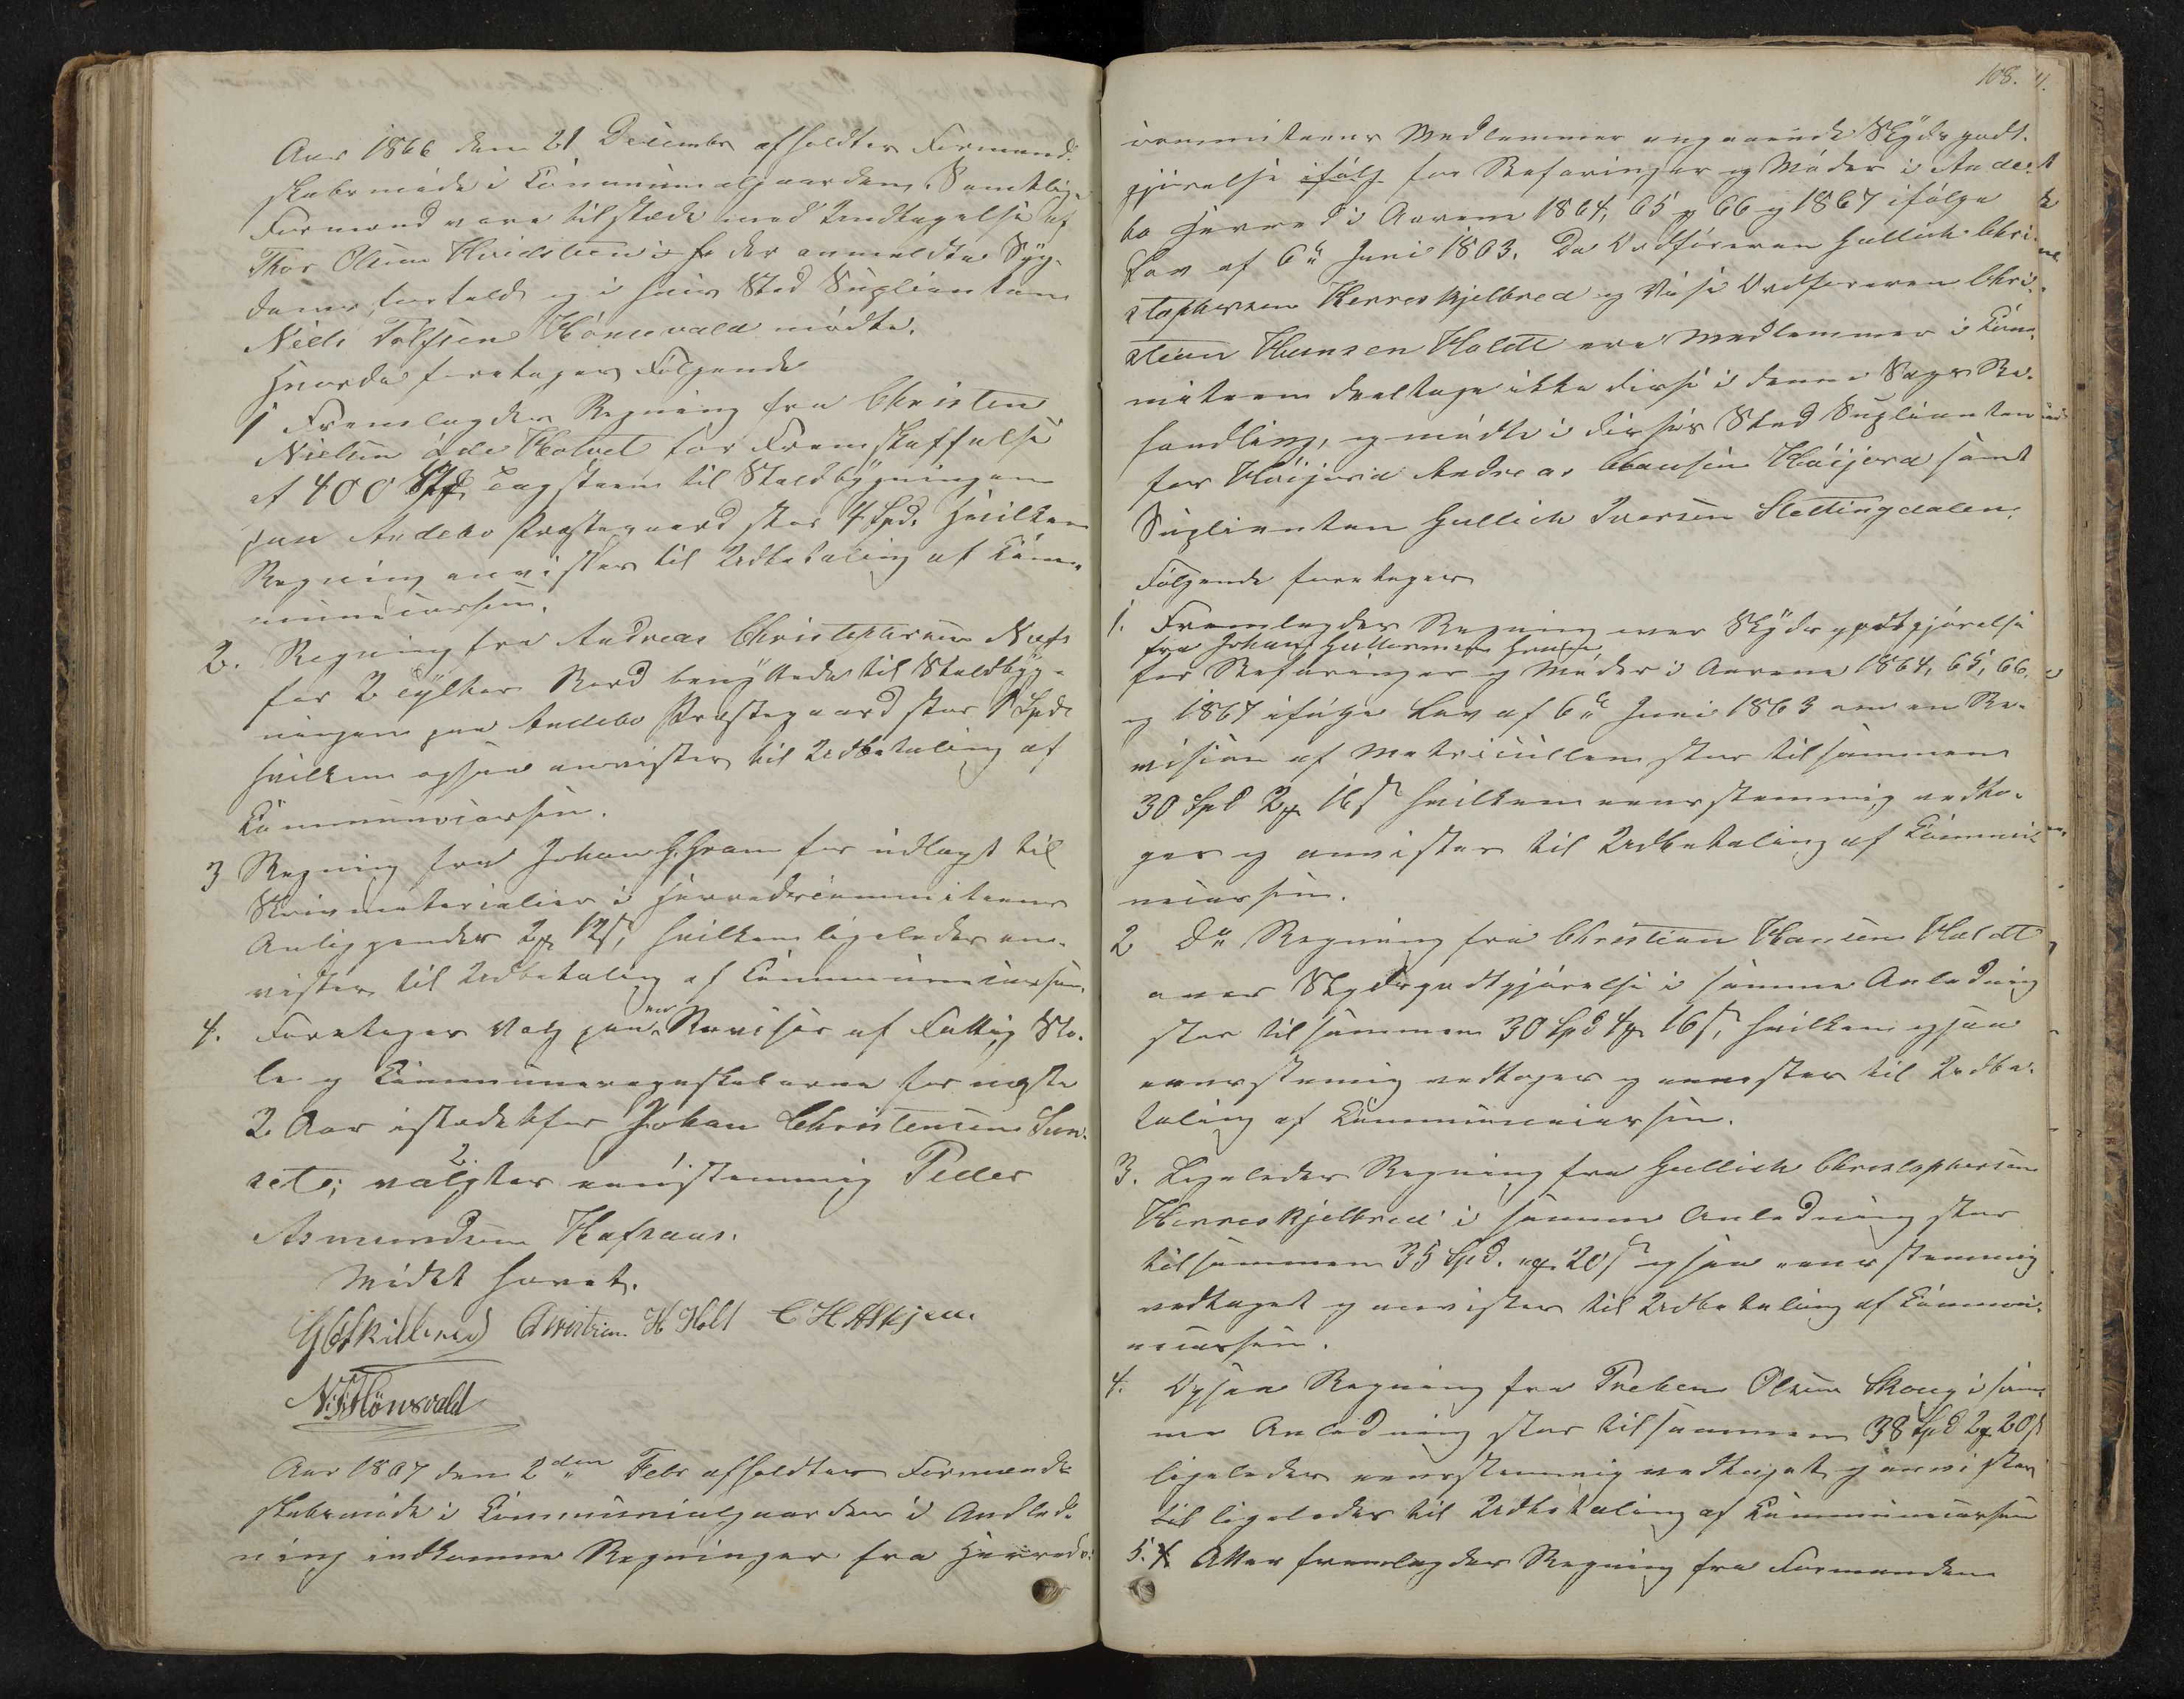 Aar 1866 den 21 December afholdtes Formand-
skabsmøde i Communalgaarden. Samtlige
Formænd vare tilstæde med Undtagelse af
Thor Olsen Hvidsteen der anmeldte Syg-
doms forfald og i hans Sted Suplianten
Niels Tolfsen Hönsvald mødte.
Hvorda foretoges Følgende
1 Fremlagdes Regning fra Christen
Nielsen Holvet for Fremskaffelse
af 400 Stk Tagsteen til Staldbygningen
paa Andebo Præstegaard stor 4 Spd. Hvilken
Regning anvistes til Udbetaling af Com-
municassen.
2. Regning fra Andreas Christophersen Næs
for 2 Tylter Bord benyttede til Staldbyg-
ningen paa Andebo Præstegaard stor Spd
hvilken ogsaa anvistes til Udbetaling af
Communecassen.
3 Regning fra Johan G. Gran for udlagt til
Skrivmaterialier i Herredscommiteens
Anliggender 2 12 s, hvilken ligeledes an-
vistes til Udbetaling af Communecassen.
4. Foretoges Valg paa en Revisor af Fattig Sko-
le og Communeregnskaberne for næste
2 Aar istedetfor Johan Christensen Sun-
set; valgtes 2. eenstemmig 1. Peder
Asmundsen Hafsaas.
Mødet hævet.
G C Skielbred Christian H Holt C H Askjem.
N. T. Hönsvald
Aar 1867 den 2den Febr afholdtes Formands-
skabsmøde i Communalgaarden i Andled-
ning indkomne Regninger fra Herreds-
108.
committeens Medlemmer angaaende Skydsgodt-
gjørelse ifølg for Befaringer og Møder i Ande-
bo Herred i Aarene 1864, 65 og 66 og 1867 ifølge
Lov af 6te Juni 1863. Da Ordføreren Gullich Chri-
stophersen Herreskjelbred og Vise Ordføreren Chri-
stian Hansen Holdt ere Medlemmer i Com-
miteen deeltage ikke disse i denne Sags Be-
handling, og mødte i disses Sted Suplianten
for Höijord Andreas Clausen Höijord samt
Suplianten Gullich Iversen Slettingdalen.
Følgende foretoges
1. Fremlagdes Regning over Skydsgodtgjørelse
fra Johan Gulbransen Gran
for Befaringer og Møder i Aarene 1864, 65, 66
og 1867 ifølge Lov af 6te Juni 1863 om en Re-
vision af Matricullen stor tilsammen
30 Spd 2 16 s hvilken eensstemmig vedto-
ges og anvistes til Udbetaling af Commu-
necassen.
2 Do Regning fra Christian Hansen Holdt
over Skydsgodtgjørelse i samme Anledning
stor tilsammen 30 Spd 4 16 s, hvilken ogsaa
eensstemig vedtoges og anvistes til Udbe-
taling af Communecassen.
3. Ligeledes Regning fra Gullich Christophersen
Herreskjelbred i samme Anledning stor
tilsammen 35 Spd. 20 s ogsaa eensstemmig
vedtaget og anvistes til Udbetaling af Commu-
necassen.
4. Ogsaa Regning fra Preben Olsen Skoug i sam-
me Anledning stor tilsammen 38 Spd 2 20 s
ligeledes eensstemmig vedtaget og anvistes
til ligeledes til Udbetaling af Communecassen
5. 4. Atter fremlagdes Regning fra Formanden